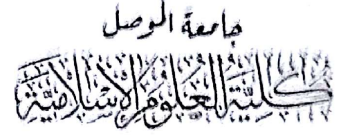 جامعة الموصل
كلية العلوم الإسلامية